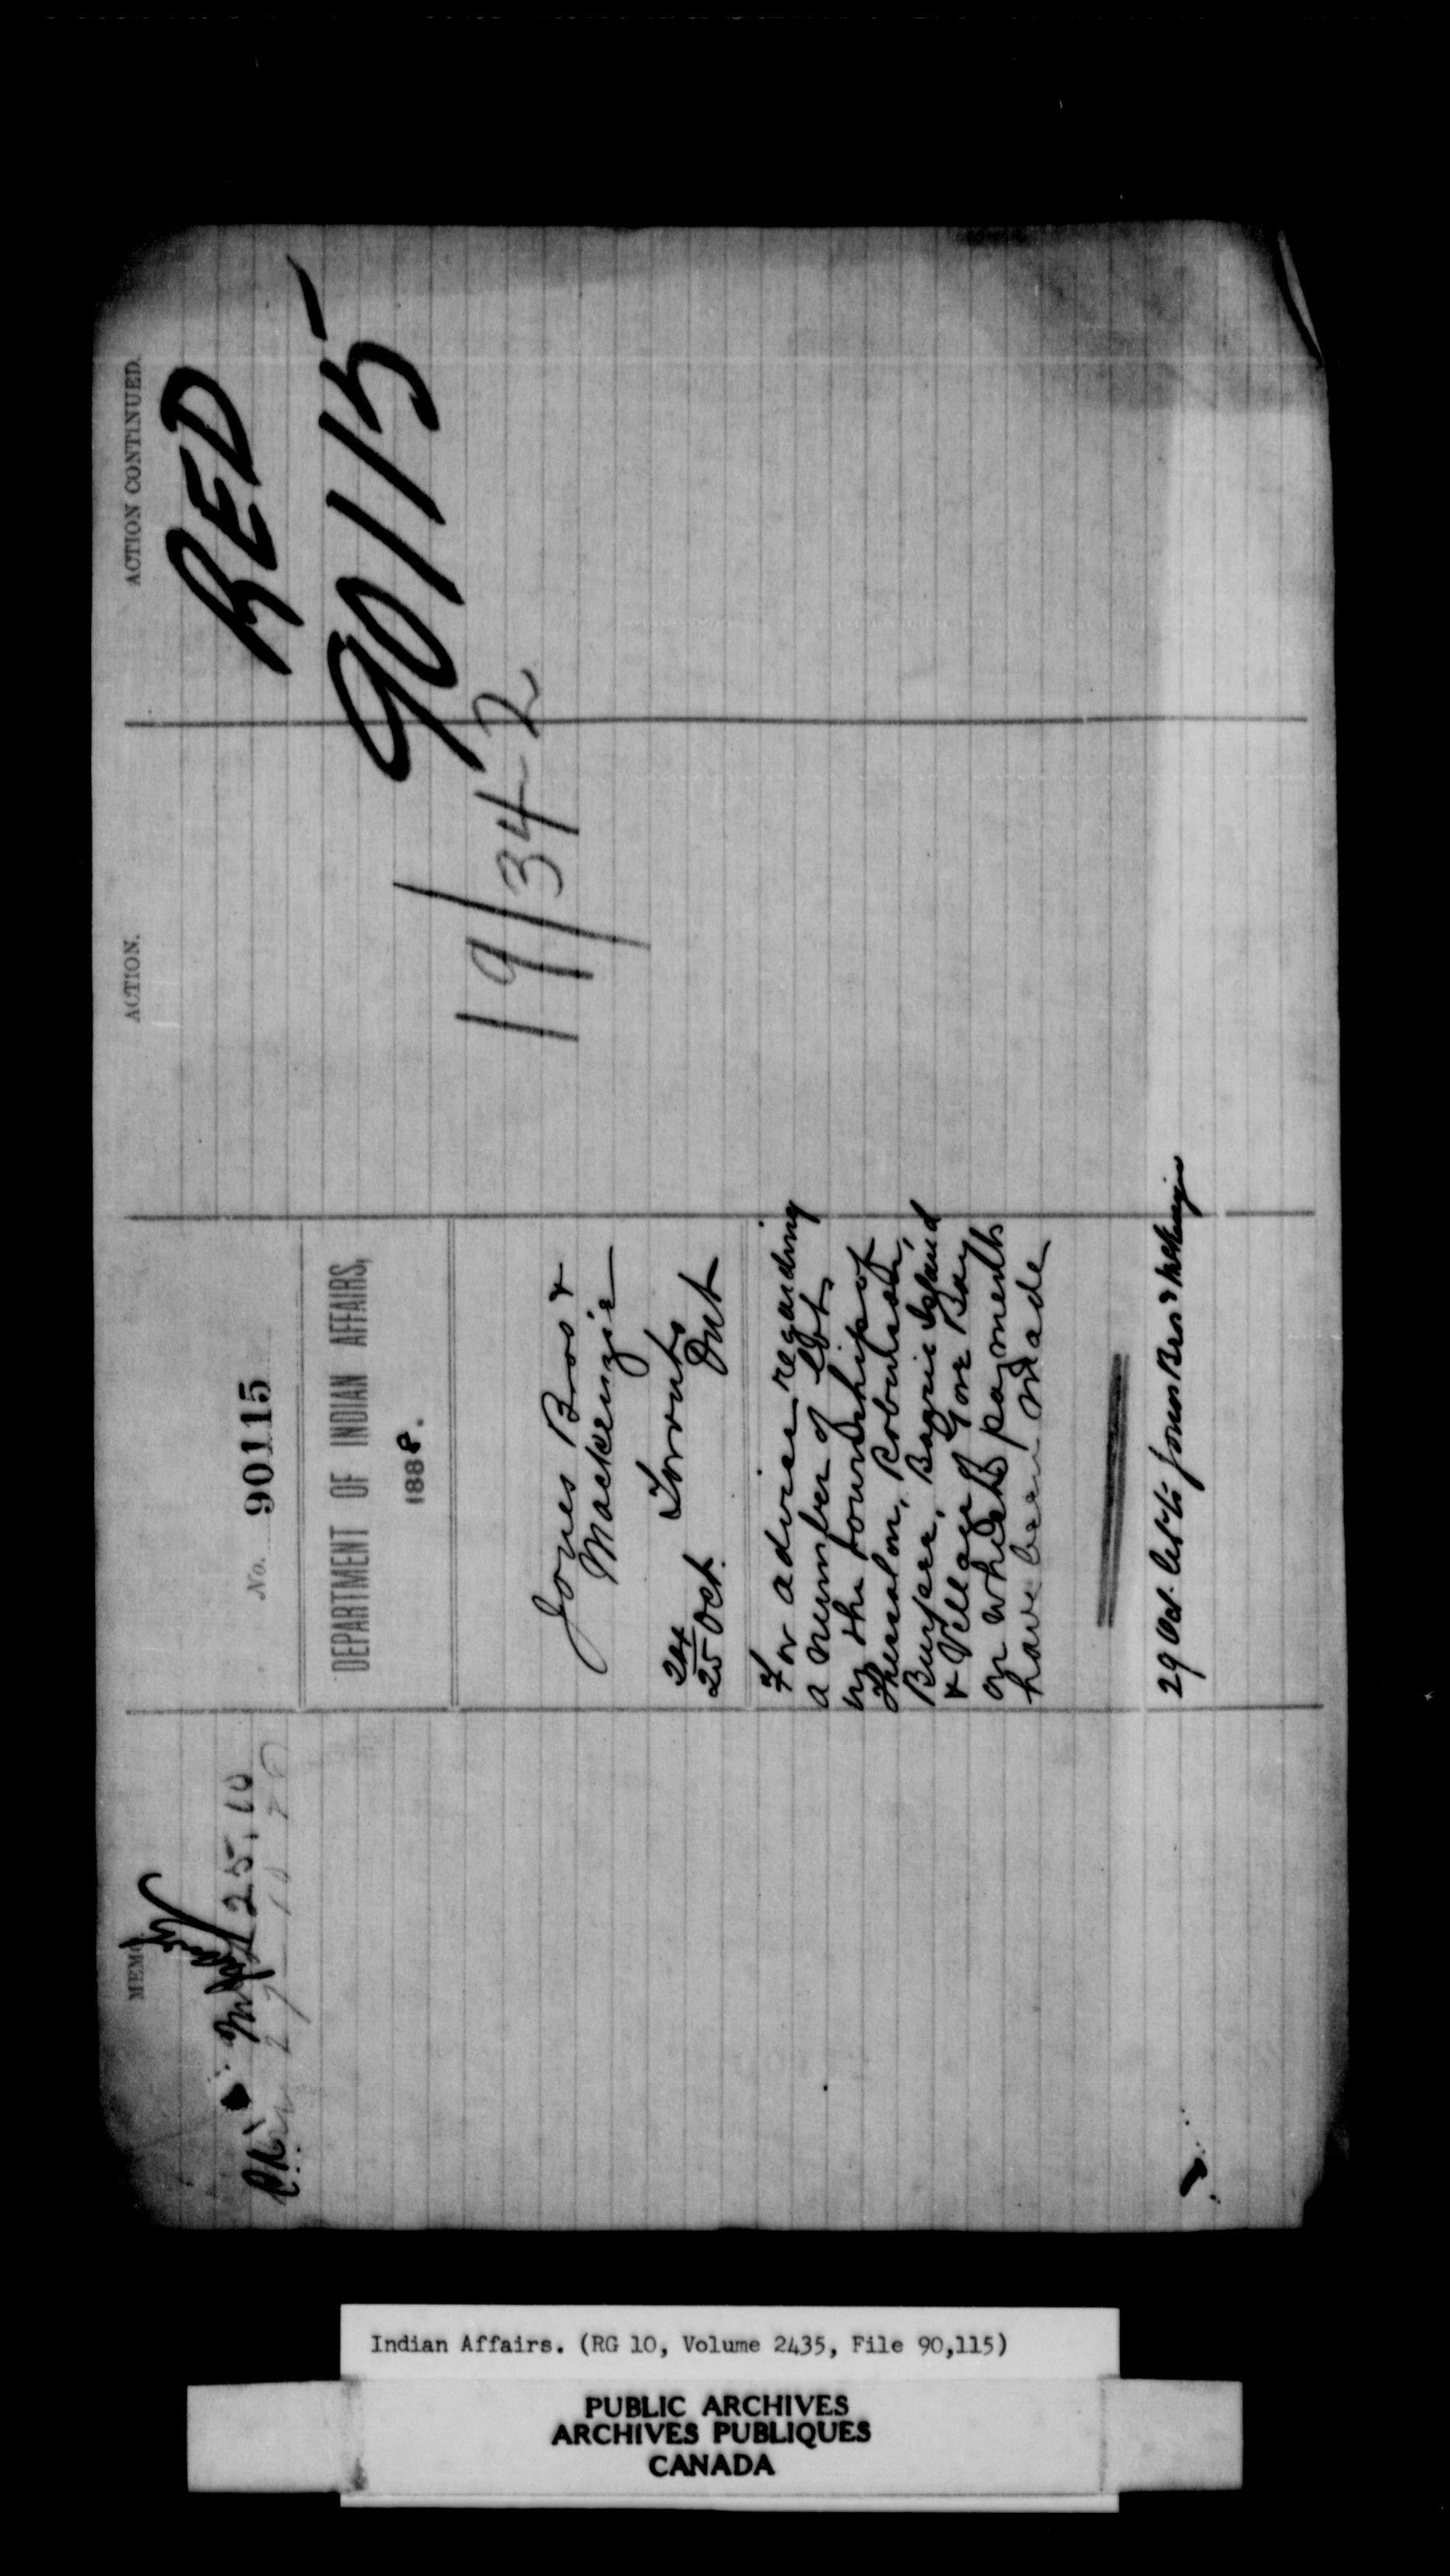 MEMO
25.10
No. 90115
DEPARTMENT OF INDIAN AFFAIRS,
1888.
Jones Bros &
Mackenzie
24/25 Oct. Toronto
Ont
For advice regarding
a number of lots
in the townships of
Thessalon, Robinson,
Burpee, Barrie Island
& Village of Gore Bay
on which payments
have been made
29 Oct. Let. to Jones Bros & McKenzie
ACTION.
19/342
ACTION CONTINUED.
RED
90115
Indian Affairs. (RG 10, Volume 2435, File 90,115)
PUBLIC ARCHIVES
ARCHIVES PUBLIQUES
CANADA